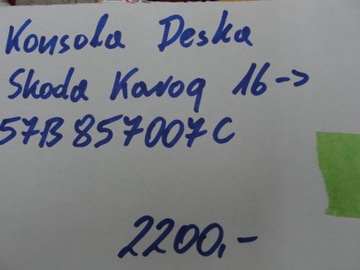 Konsola Deska
Skoda Karoq 16->
57B857007C
2200,-